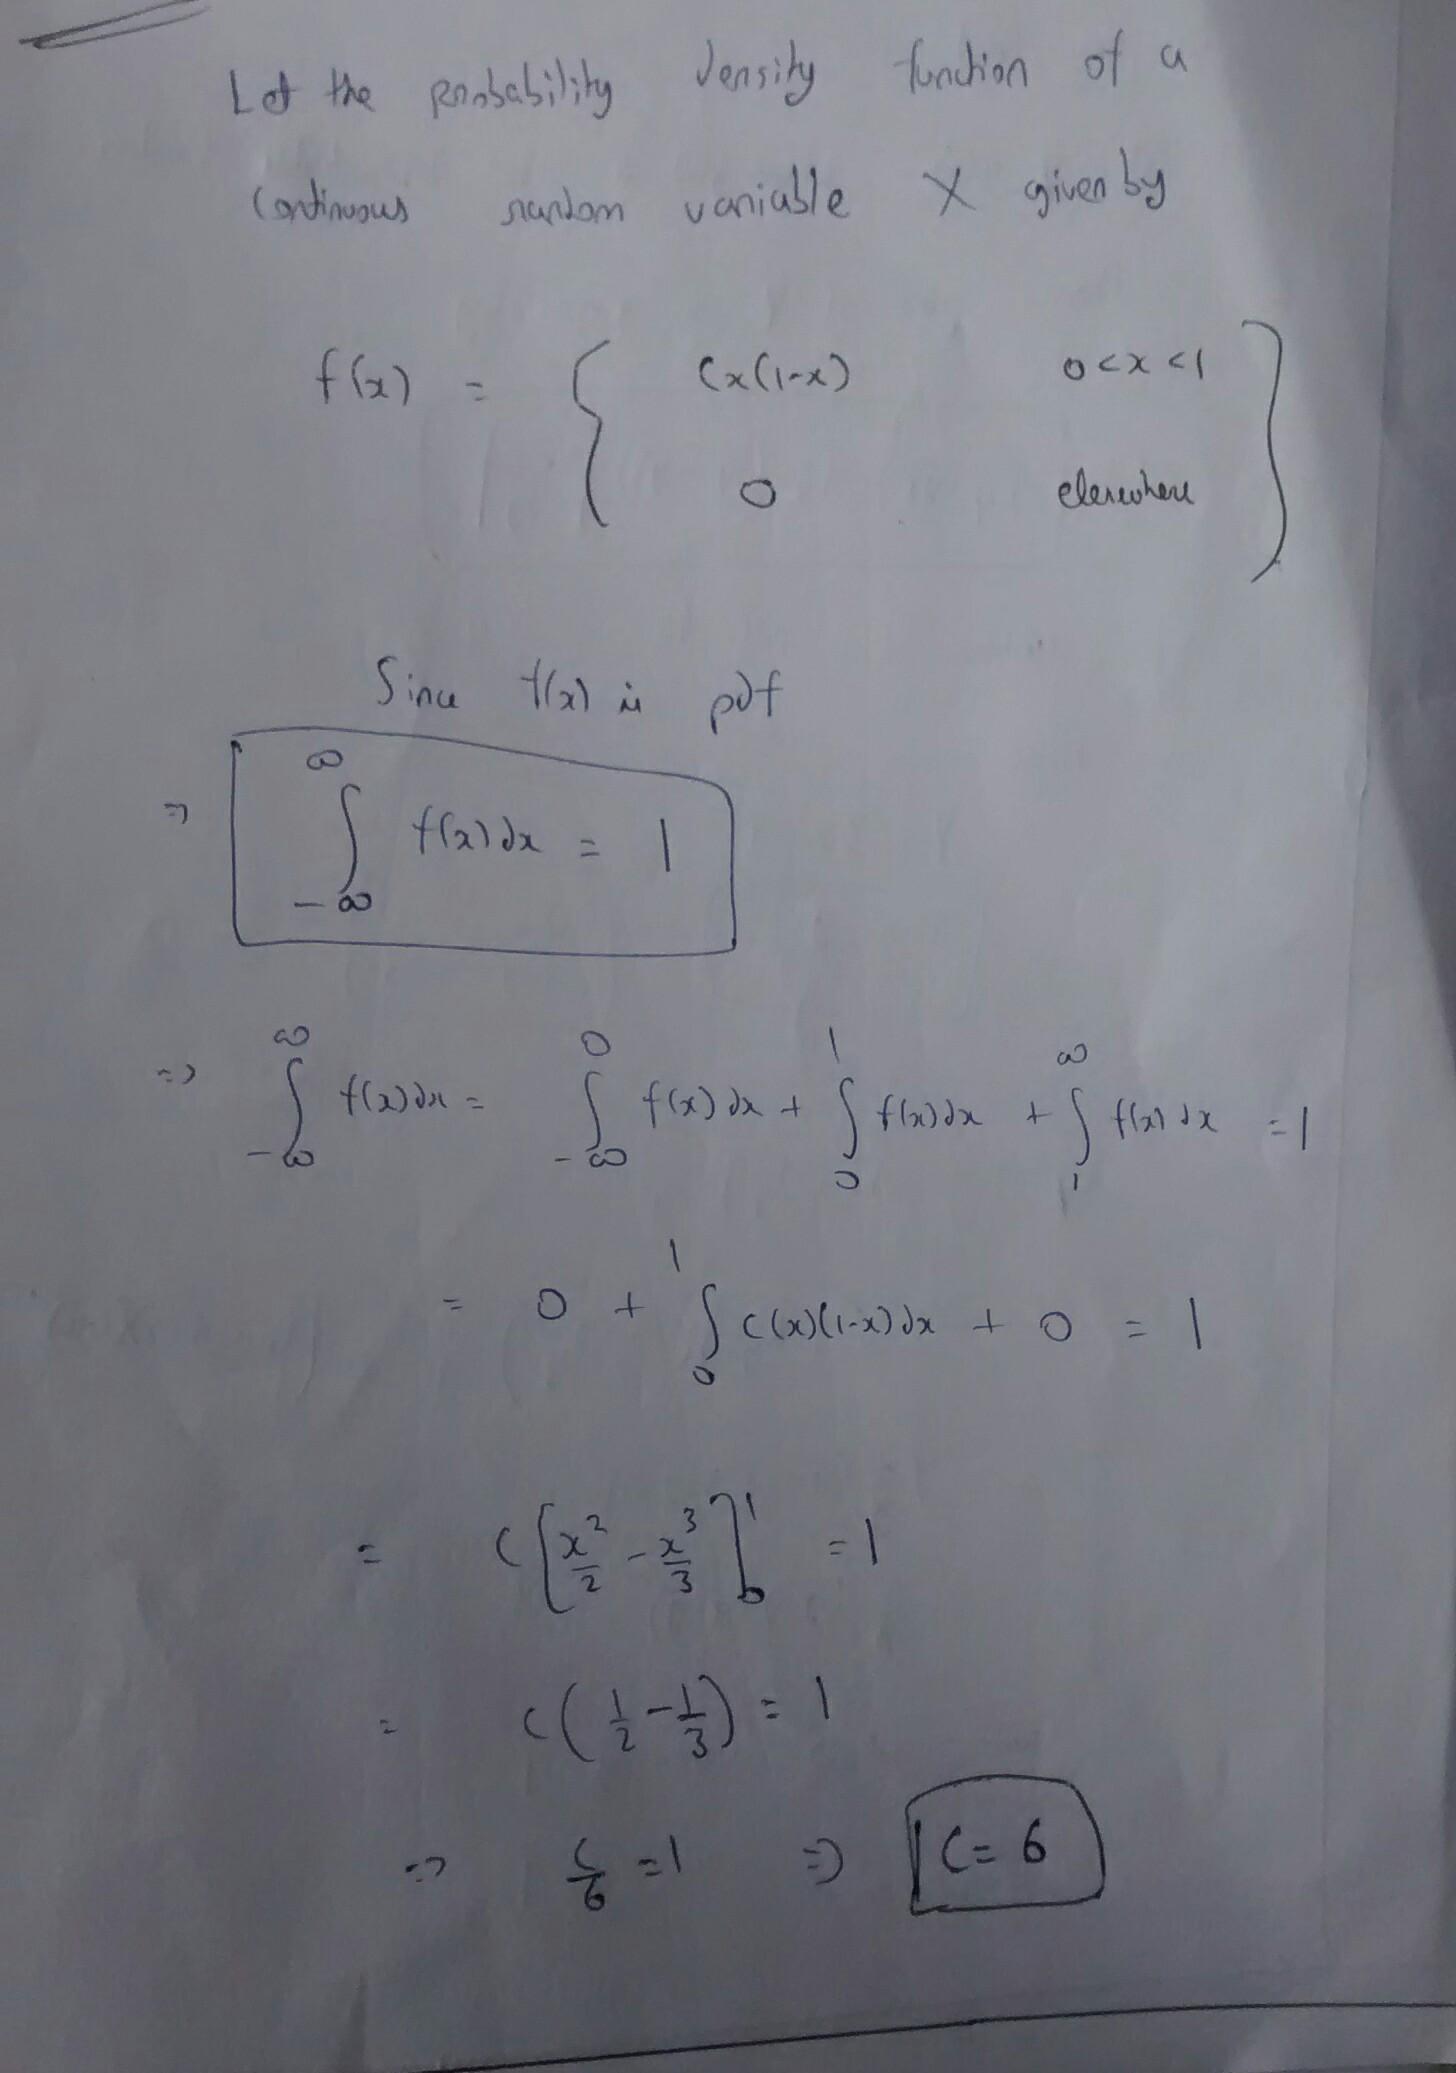 Let the probability density function of a
continuous random variable X given by
f(x) = { Cx(1-x) 0<x<1
0 elsewhere }
Since f(x) is pdf
⇒ ∫_{-∞}^{∞} f(x)dx = 1
⇒ ∫_{-∞}^{∞} f(x)dx = ∫_{-∞}^{0} f(x)dx + ∫_{0}^{1} f(x)dx + ∫_{1}^{∞} f(x)dx = 1
= 0 + ∫_{0}^{1} C(x)(1-x)dx + 0 = 1
= C[x²/2 - x³/3]_{0}^{1} = 1
= C(1/2 - 1/3) = 1
⇒ C/6 = 1 ⇒ C = 6